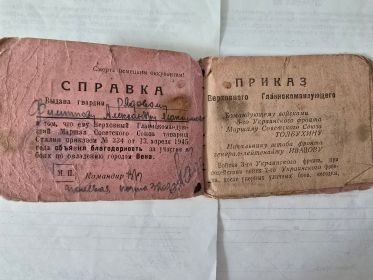 Смерть немецким оккупантам!
СПРАВКА
Выдана гвардии Рядовому
в том, что ему Верховный Главнокомандую-
щий Маршал Советского Союза товарищ
Сталин приказом № 334 от 13 апреля 1945
года объявил благодарность за участие в
боях по овладению городом Вена.
М П
Командир
полевая почта
ПРИКАЗ
Верховного Главнокомандующего
Командующему войсками
3-го Украинского фронта
Маршалу Советского Союза
ТОЛБУХИНУ
Начальнику штаба фронта
генерал-лейтенанту ИВАНОВУ
Войска 3-го Украинского фронта, при
содействии войск 2-го Украинского фронта,
после упорных уличных боёв, сегодня,